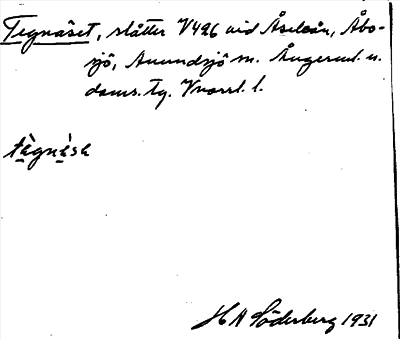 Tegnäset, slåtter V426 vid Åseleån, Åbo-
sjö, Anundsjö sn. Ångerml. n.
doms. Tg. Vnorrl. l.
tègnèsε
H A Söderberg 1931